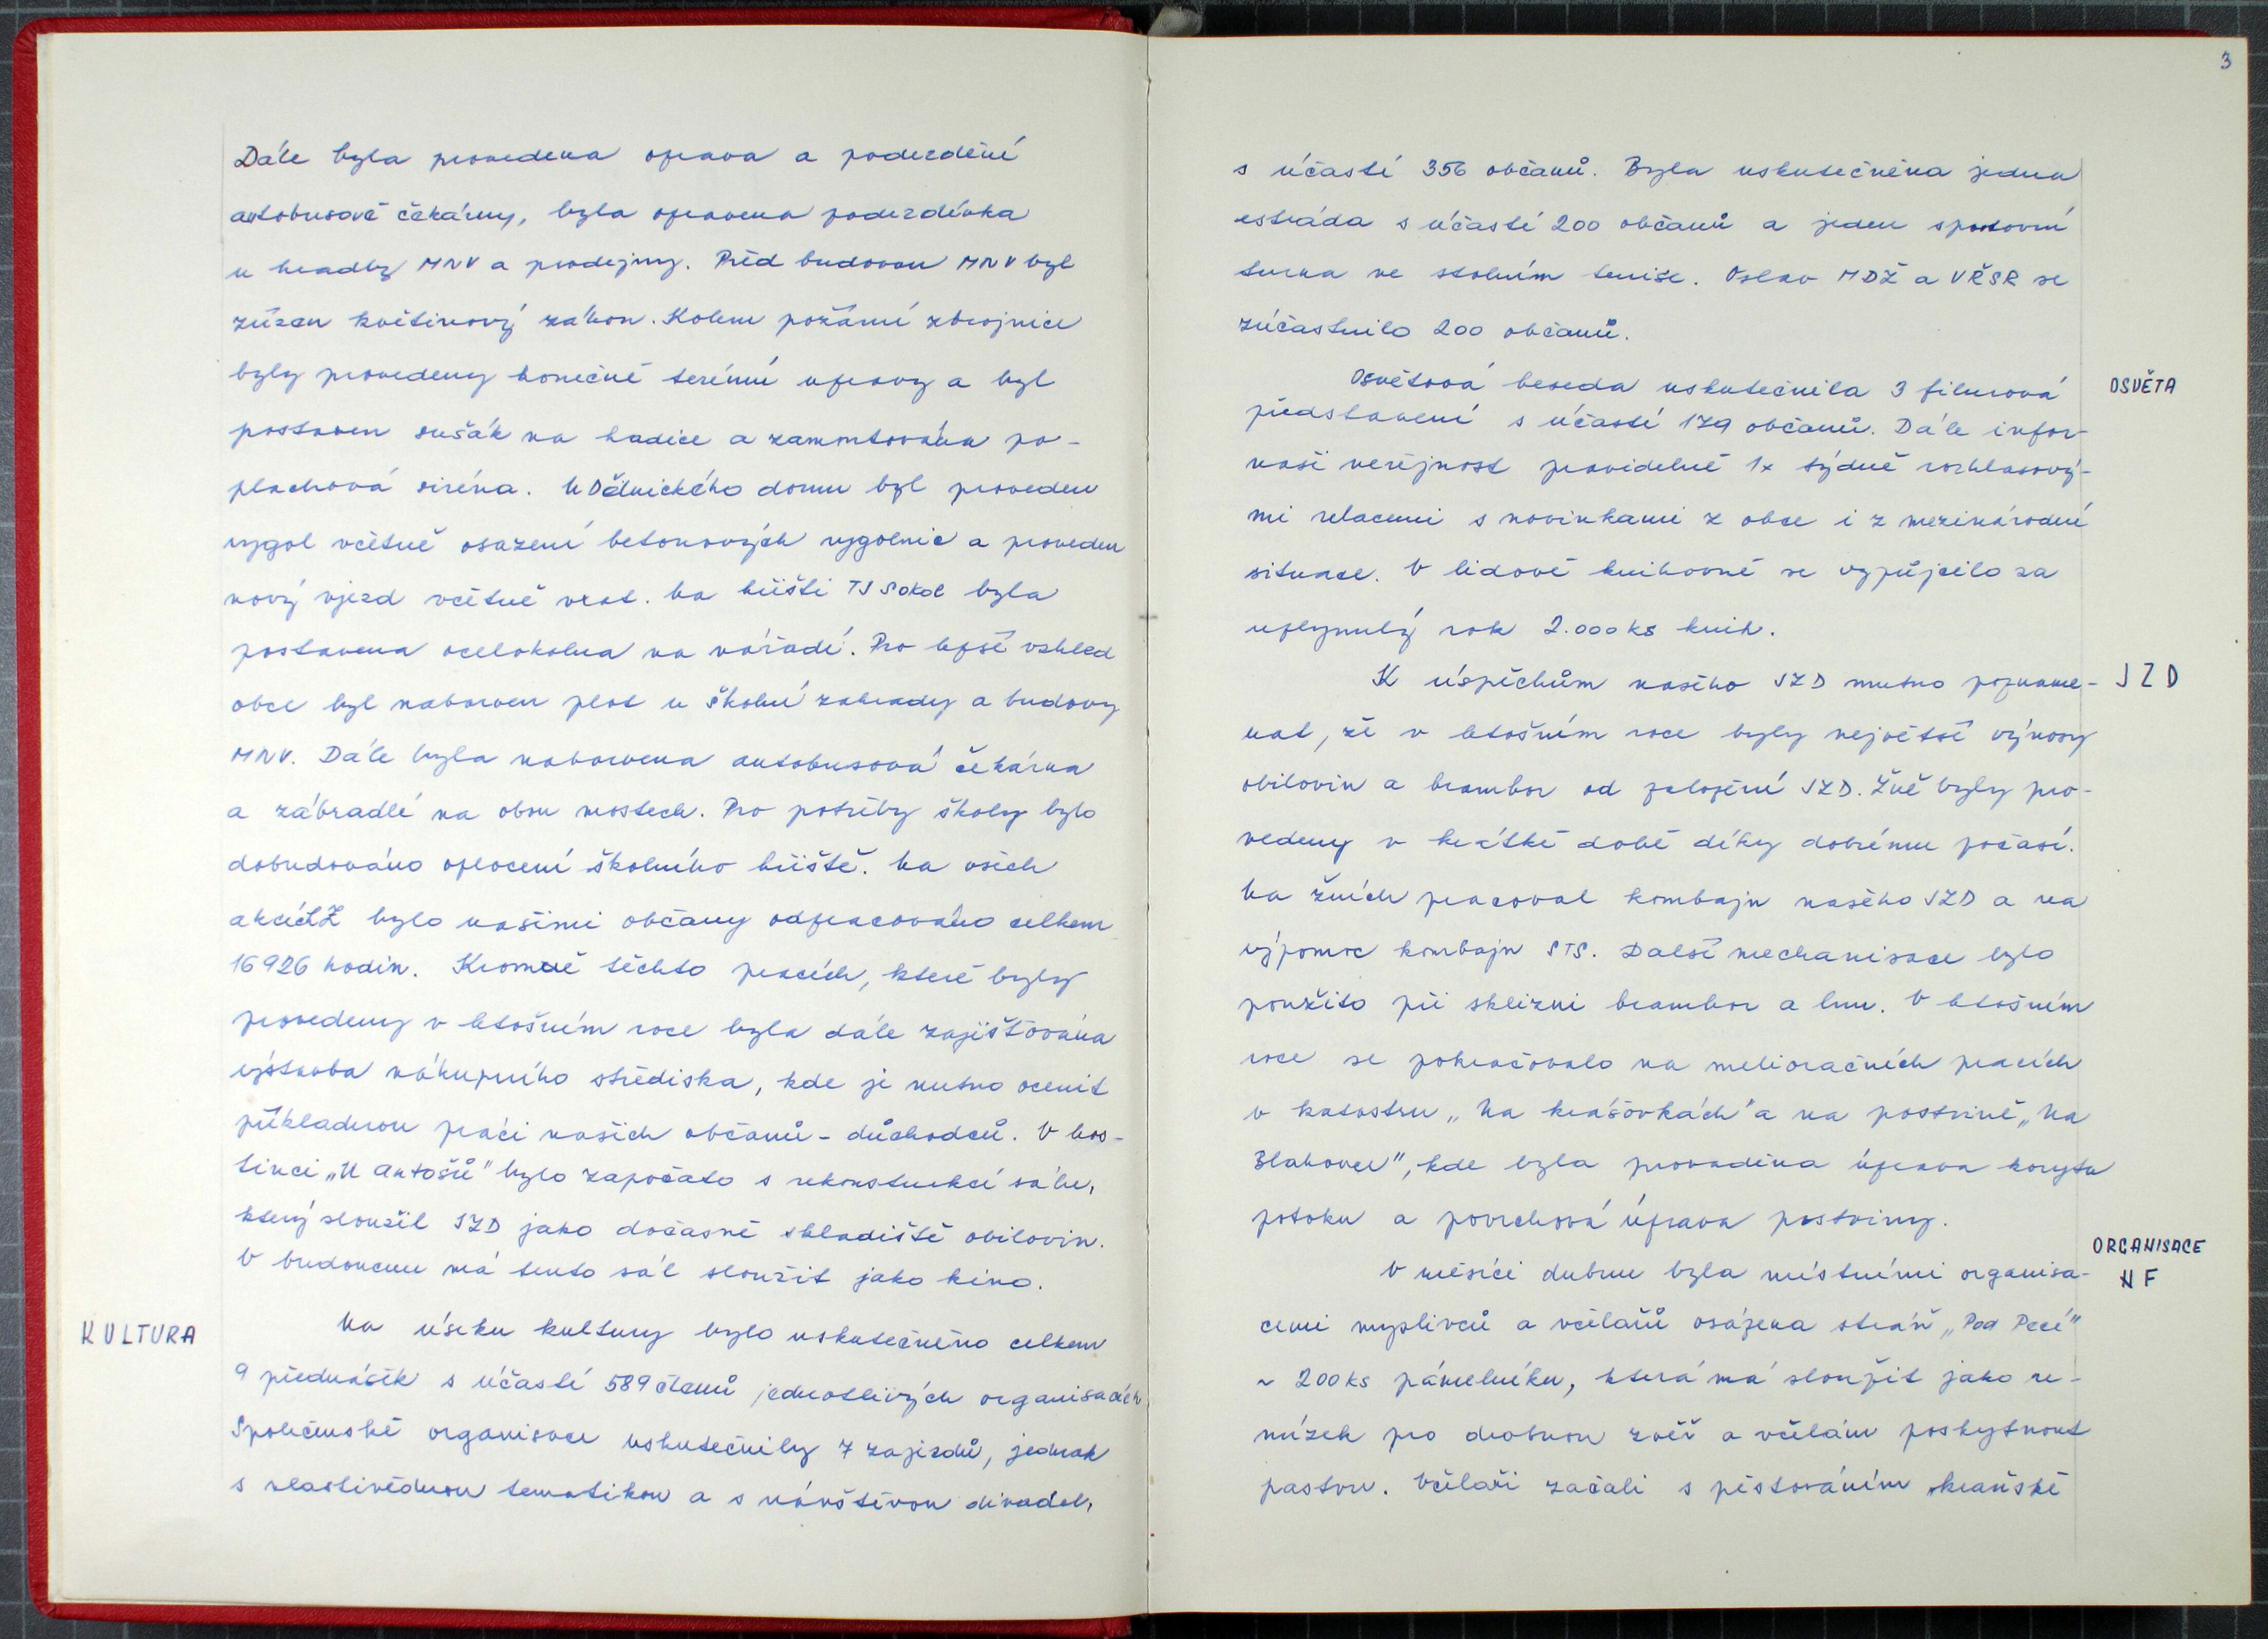 Dále byla provedena oprava a podezdění
autobusové čekárny, byla opravena podezdívka
u hradby MNV a prodejny. Před budovou MNV byl
zřízen květinový záhon. Kolem požární zbrojnice
byly provedeny konečné terénní úpravy a byl
postaven sušák na hadice a zamontována po-
plachová siréna. U Dělnického domu byl proveden
rygol včetně osazení betonových rygolnic a proveden
nový vjezd včetně vrat. Na hřišti TJ Sokol byla
postavena ocelokolna na nářadí. Pro lepší vzhled
obce byl nabarven plot u školní zahrady a budovy
MNV. Dále byla nabarvena autobusová čekárna
a zábradlí na obou mostech. Pro potřeby školy bylo
dobudováno oplocení školního hřiště. Na všech
akcích Z bylo našimi občany odpracováno celkem
16926 hodin. Kromě těchto pracích, které byly
provedeny v letošním roce byla dále zajišťována
výstavba nákupního střediska, kde je nutno ocenit
příkladnou práci našich občanů - důchodců. V hos-
tinci „U Antošů" bylo započato s rekonstrukcí sálu,
který sloužil JZD jako dočasné skladiště obilovin.
V budoucnu má tento sál sloužit jako kino.
KULTURA
Na úseku kultury bylo uskutečněno celkem
9 přednášek s účastí 589 členů jednotlivých organisacích
Společenské organisace uskutečnily 7 zajezdů, jednak
s vlastivědnou tematikou a s návštěvou divadel,
3
s účastí 356 občanů. Byla uskutečněna jedna
estráda s účastí 200 občanů a jeden sportovní
turna ve stolním tenise. Oslav MDŽ a VŘSR se
zúčastnilo 200 občanů.
OSVĚTA
Osvětová beseda uskutečnila 3 filmová
představení s účastí 179 občanů. Dále infor-
vaší veřejnost pravidelně 1x týdně rozhlasový-
mi relacemi s novinkami z obce i z mezinárodní
situace. V lidové knihovně se vypůjčilo za
uplynulý rok 2.000 ks knih.
JZD
K úspěchům našeho JZD nutno pozname-
nat, že v letošním roce byly největší výnosy
obilovin a brambor od založení JZD. Žně byly pro-
vedeny v krátké době díky dobrému počasí.
Na žních pracoval kombajn našeho JZD a na
výpomoc kombajn STS. Další mechanisace bylo
použito při sklizni brambor a lnu. V letošním
roce se pokračovalo na melioračních pracích
v katastru „Na krášovkách" a na pastvině „Na
Blahovce", kde byla prováděna úprava koryta
potoku a povrchová úprava pastviny.
ORGANISACE
NF
V měsíci dubnu byla místními organisa-
cemi myslivců a včelařů osázena stráň „Pod Pecí"
~ 200 ks pámelníku, která má sloužit jako re-
mízek pro drobnou zvěř a včelám poskytnout
pastvu. Včelaři začali s pěstováním kraňské